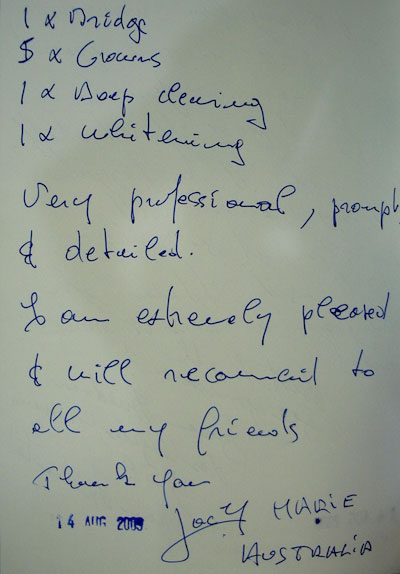 1 x Bridge
5 x Crowns
1 x Deep cleaning
1 x Whitening
Very professional, prompt
& detailed.
I am extremely pleased
& will recommend to
all my friends
Thank you
14 AUG 2009 MARIE
AUSTRALIA